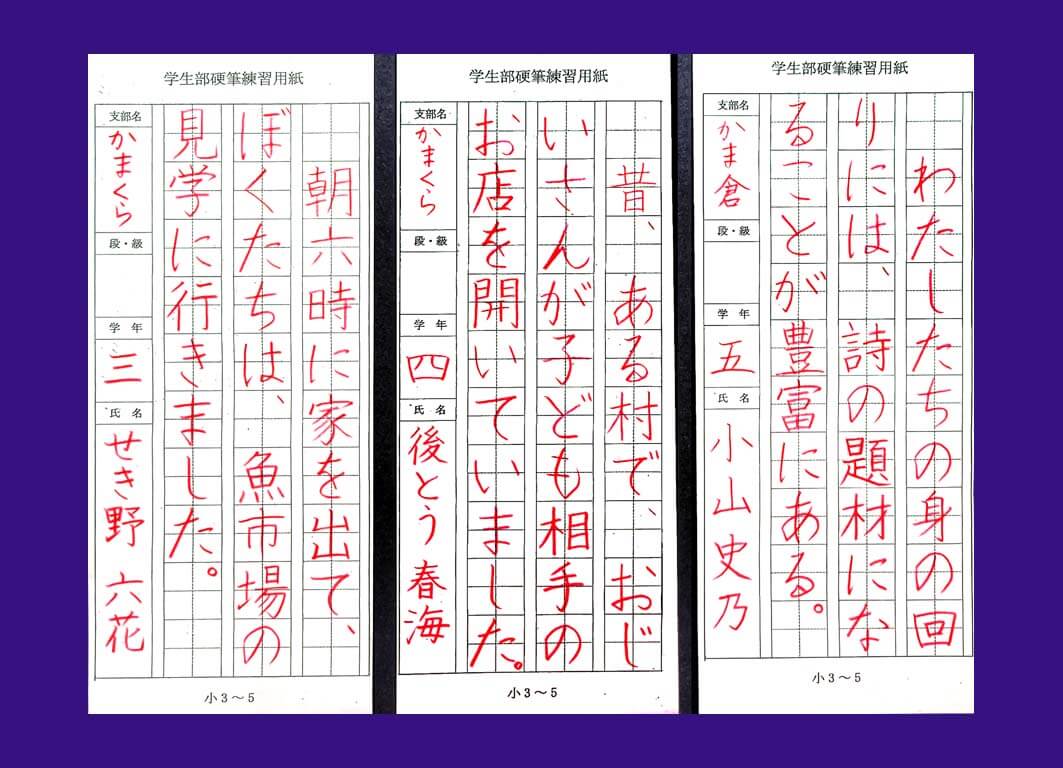 学生部硬筆練習用紙
わたしたちの身の回
りには、詩の題材にな
ることが豊富にある。
支部名
かま倉
段・級
学年
五
氏名
小山史乃
小3〜5
学生部硬筆練習用紙
昔、ある村で、おじ
いさんが子ども相手の
お店を開いていました。
支部名
かまくら
段・級
学年
四
氏名
後とう 春海
小3〜5
学生部硬筆練習用紙
朝六時に家を出て、
ぼくたちは、魚市場の
見学に行きました。
支部名
かまくら
段・級
学年
三
氏名
せき野 六花
小3〜5